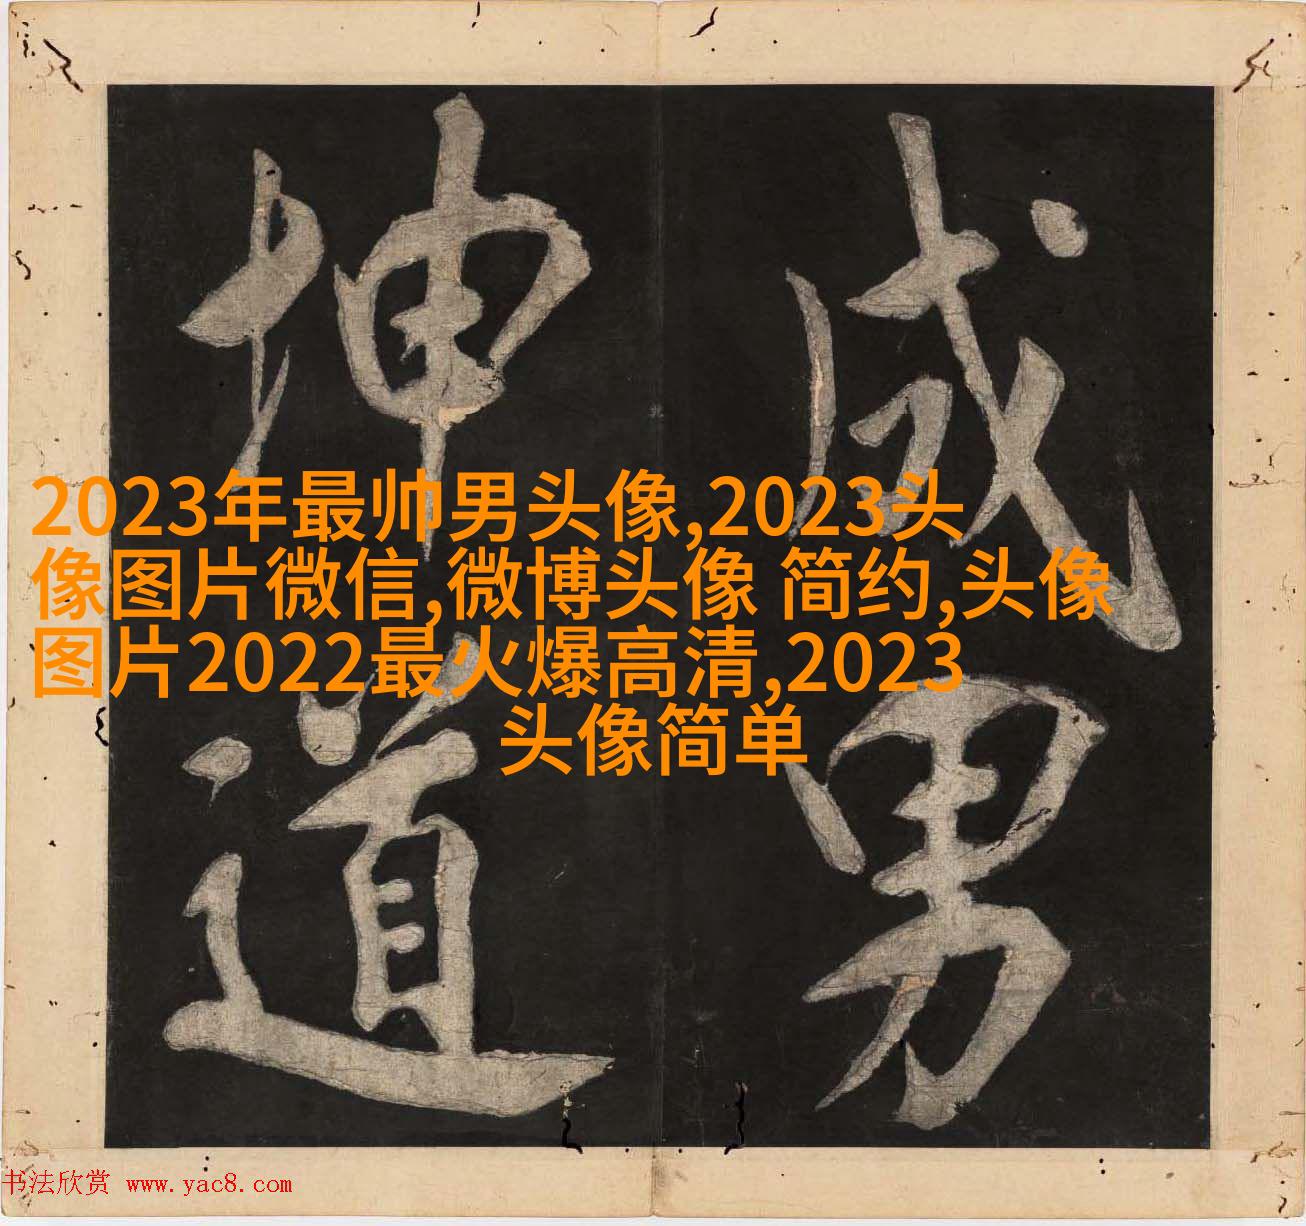 成男
坤道
2023年最帅男头像,2023头
像图片微信,微博头像 简约,头像
图片2022最火爆高清,2023
头像简单
书法欣赏 www.yac8.com